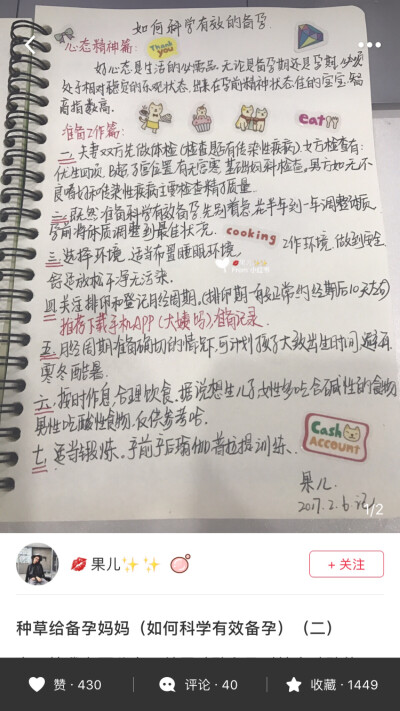 如何科学有效的备孕
心态精神篇:
Thank you
好心态是生活的必需品,无论是备孕期还是孕期,必须
处于相对稳定的乐观状态,出来在孕前精神状态佳的宝宝智
商指数高.
准备工作篇:
eat
一、夫妻双方先做体检(检查是否有传染性疾病)女方检查有:
优生四项、B超子宫位置,有无宫寒,基础妇科检查。男方如无不
良嗜好和传染性疾病主要检查精子质量.
二、既然准备科学有效备孕先别着急花半年到一年调整体质
孕前将体质调整到最佳状况.
cooking
三、选择环境,适当布置睡眠环境,
工作环境,做到安全
舒适放松干净无污染.
四.关注排卵和登记月经周期.(排卵期一般正常为经期后10天左右)
推荐下载手机APP(大姨吗)准备记录.
五.月经周期准备确切的情况,可计划孩子大致出生时间,避开
寒冬酷暑.
六,按时作息,合理饮食.据说想生儿子女性多吃含碱性的食物
男性吃酸性食物,仅供参考哈.
Cash
Account
七、适当锻炼.孕前孕后瑜伽普拉提训练.
果儿.
2017.2.6记
1/2
果儿
+ 关注
种草给备孕妈妈(如何科学有效备孕)(二)
赞 · 430
评论 · 40
收藏 · 1449